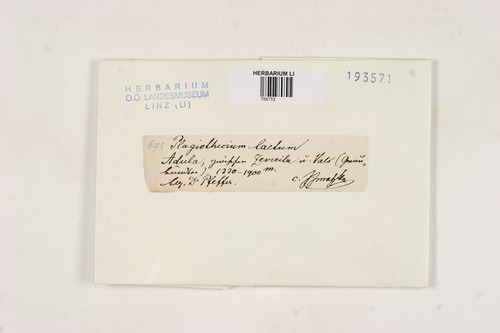 HERBARIUM
O.Ö. LANDESMUSEUM
LINZ (LI)
HERBARIUM LI
193571
675 Plagiothecium laetum
Adula, zwischen Zevreila u. Vals (Grau-
bünden), 1330-1900 m.
leg. Dr Pfeffer. c.